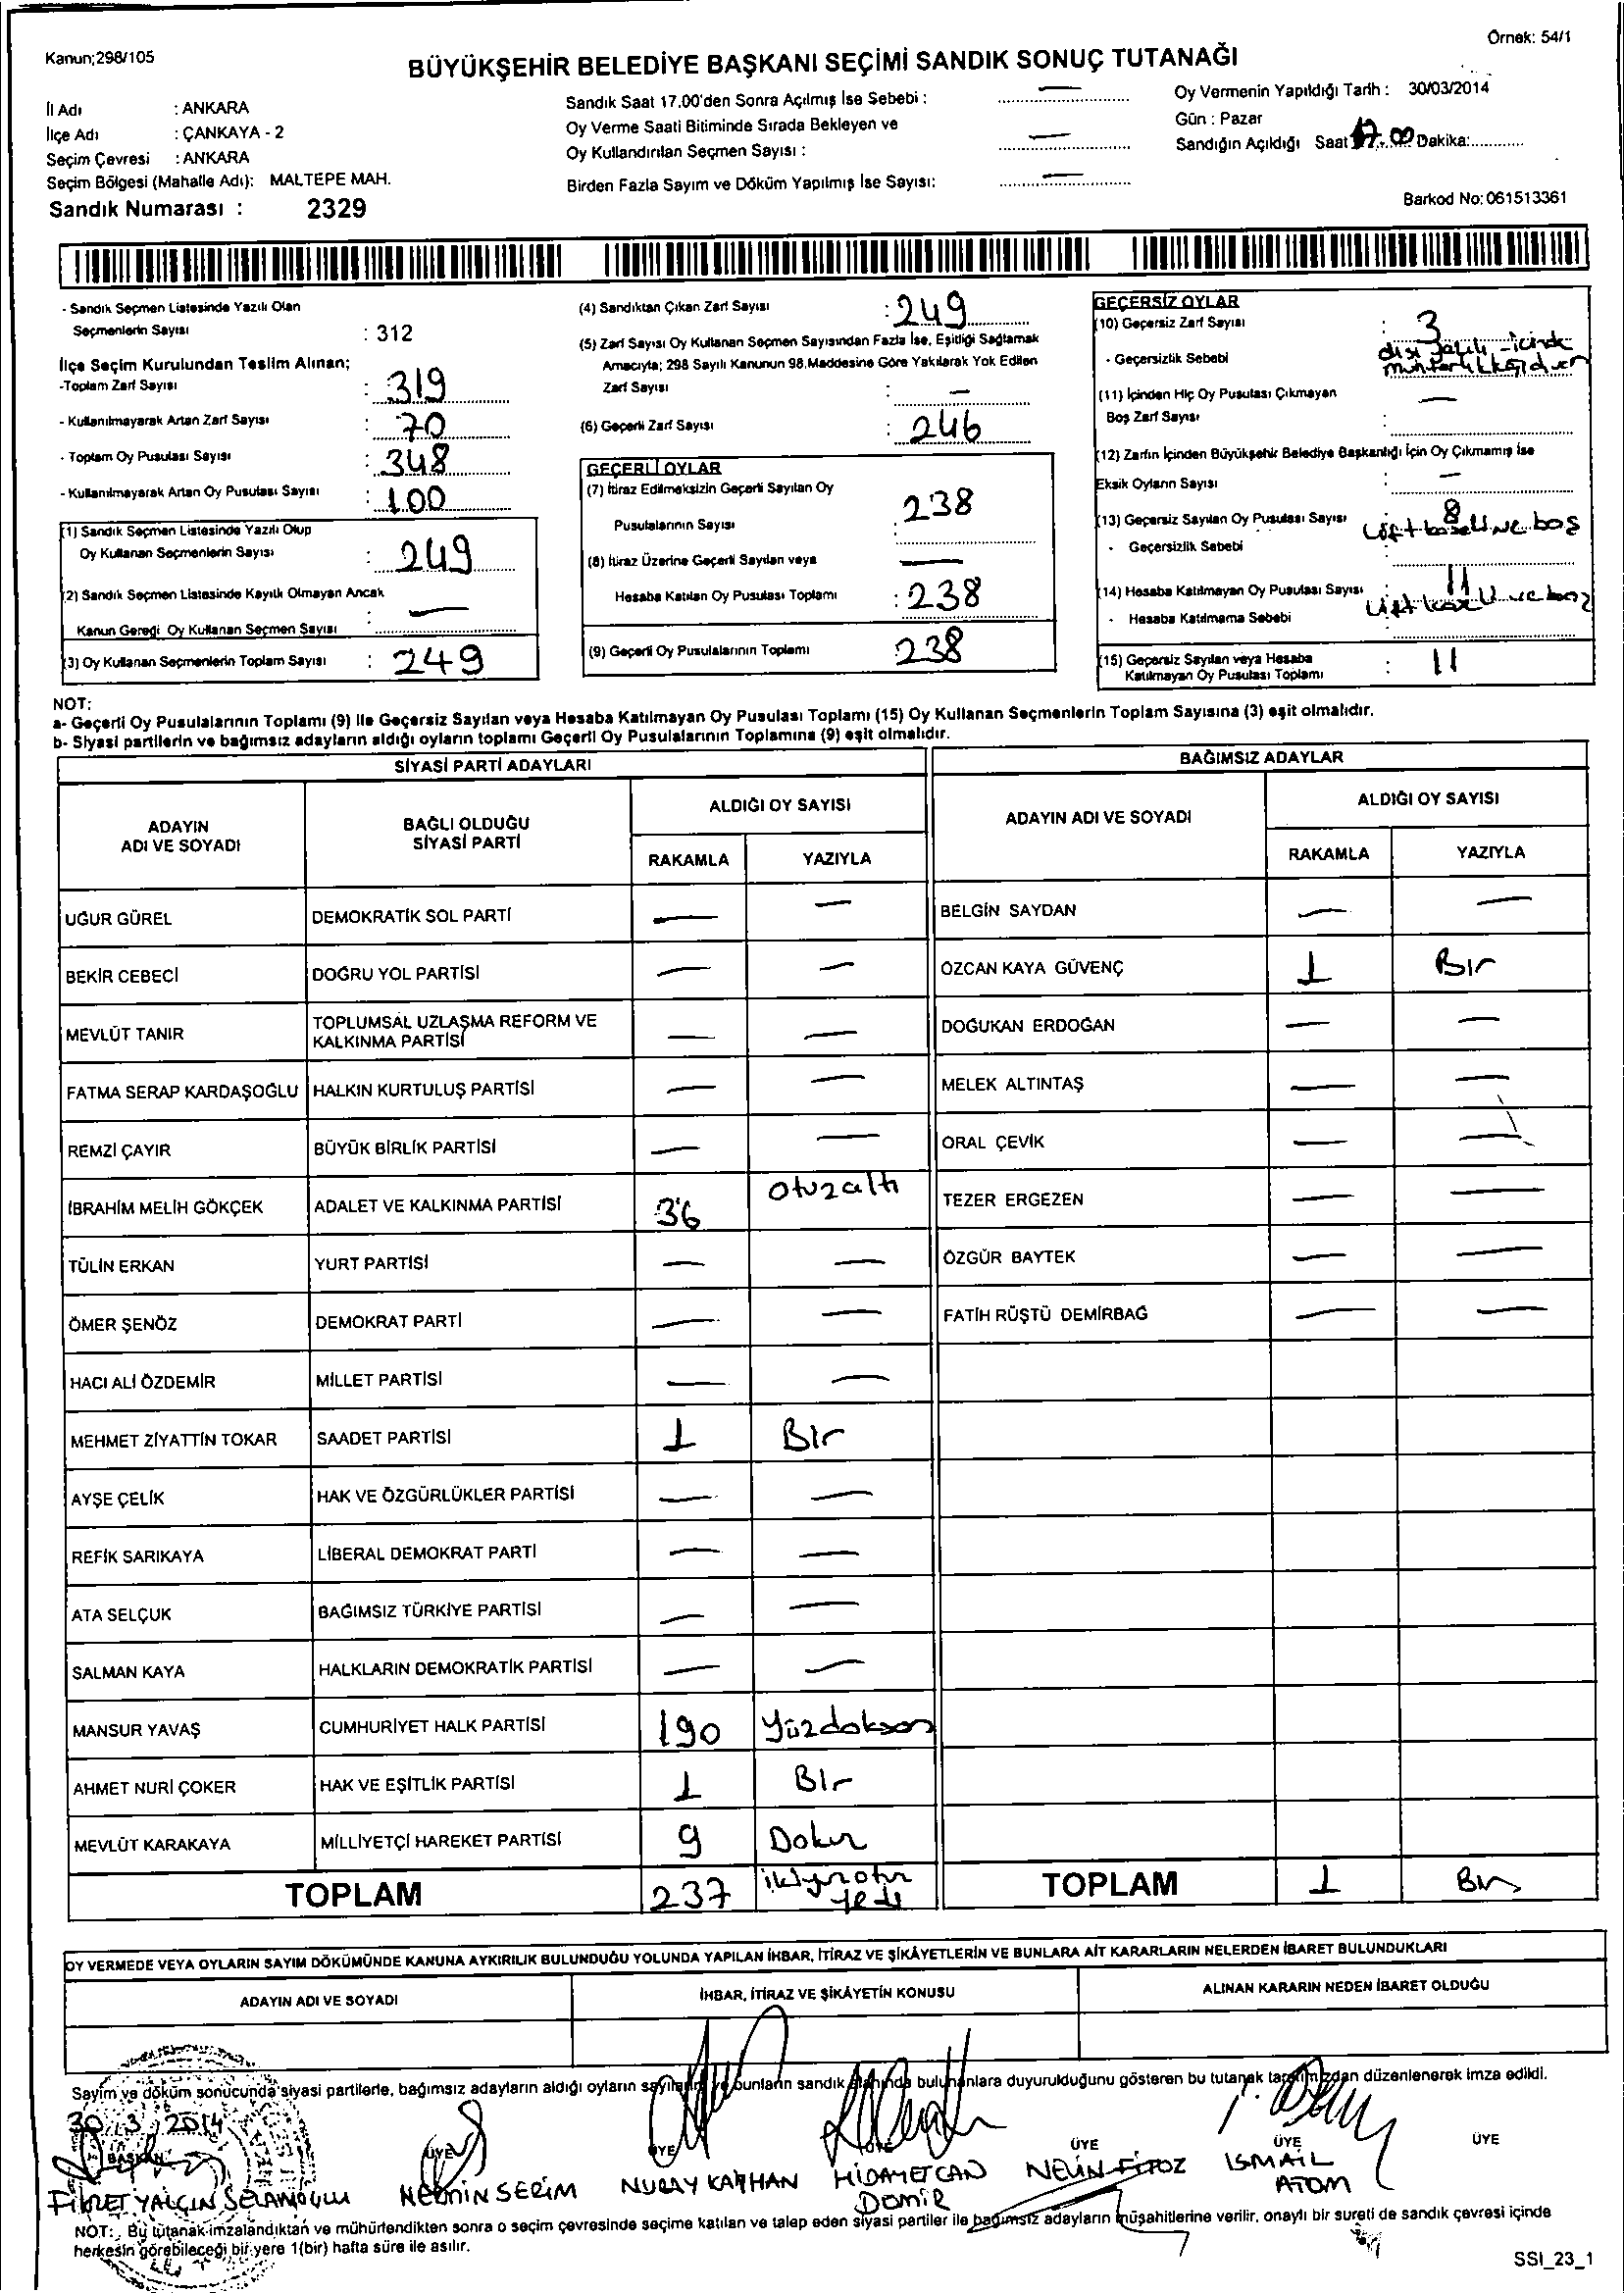 Kanun;298/105
Örnek: 54/1
BÜYÜKŞEHİR BELEDİYE BAŞKANI SEÇİMİ SANDIK SONUÇ TUTANAĞI
İl Adı : ANKARA
İlçe Adı : ÇANKAYA - 2
Seçim Çevresi : ANKARA
Seçim Bölgesi (Mahalle Adı): MALTEPE MAH.
Sandık Numarası : 2329
Sandık Saat 17.00'den Sonra Açılmış İse Sebebi : —
Oy Verme Saati Bitiminde Sırada Bekleyen ve
Oy Kullandırılan Seçmen Sayısı : —
Birden Fazla Sayım ve Döküm Yapılmış İse Sayısı: —
Oy Vermenin Yapıldığı Tarih : 30/03/2014
Gün : Pazar
Sandığın Açıldığı Saat 17.00 Dakika:
Barkod No: 061513361
- Sandık Seçmen Listesinde Yazılı Olan
Seçmenlerin Sayısı : 312
İlçe Seçim Kurulundan Teslim Alınan;
-Toplam Zarf Sayısı : 319
- Kullanılmayarak Artan Zarf Sayısı : 70
- Toplam Oy Pusulası Sayısı : 348
- Kullanılmayarak Artan Oy Pusulası Sayısı : 100
(1) Sandık Seçmen Listesinde Yazılı Olup
Oy Kullanan Seçmenlerin Sayısı : 249
(2) Sandık Seçmen Listesinde Kayıtlı Olmayan Ancak
Kanun Gereği Oy Kullanan Seçmen Sayısı : —
(3) Oy Kullanan Seçmenlerin Toplam Sayısı : 249
(4) Sandıktan Çıkan Zarf Sayısı : 249
(5) Zarf Sayısı Oy Kullanan Seçmen Sayısından Fazla İse, Eşitliği Sağlamak
Amacıyla; 298 Sayılı Kanunun 98.Maddesine Göre Yakılarak Yok Edilen
Zarf Sayısı : —
(6) Geçerli Zarf Sayısı : 246
GEÇERLİ OYLAR
(7) İtiraz Edilmeksizin Geçerli Sayılan Oy
Pusulalarının Sayısı : 238
(8) İtiraz Üzerine Geçerli Sayılan veya —
Hesaba Katılan Oy Pusulası Toplamı : 238
(9) Geçerli Oy Pusulalarının Toplamı : 238
GEÇERSİZ OYLAR
(10) Geçersiz Zarf Sayısı : 3
- Geçersizlik Sebebi : dışı içinde
muhtarlık kağıdı var
(11) İçinden Hiç Oy Pusulası Çıkmayan
Boş Zarf Sayısı : —
(12) Zarfın İçinden Büyükşehir Belediye Başkanlığı İçin Oy Çıkmamış İse
Eksik Oyların Sayısı : —
(13) Geçersiz Sayılan Oy Pusulası Sayısı : 8
- Geçersizlik Sebebi çift ve boş
(14) Hesaba Katılmayan Oy Pusulası Sayısı : 11
- Hesaba Katılmama Sebebi
(15) Geçersiz Sayılan veya Hesaba
Katılmayan Oy Pusulası Toplamı : 11
NOT:
a- Geçerli Oy Pusulalarının Toplamı (9) ile Geçersiz Sayılan veya Hesaba Katılmayan Oy Pusulası Toplamı (15) Oy Kullanan Seçmenlerin Toplam Sayısına (3) eşit olmalıdır.
b- Siyasi partilerin ve bağımsız adayların aldığı oyların toplamı Geçerli Oy Pusulalarının Toplamına (9) eşit olmalıdır.
SİYASİ PARTİ ADAYLARI
ADAYIN
ADI VE SOYADI
BAĞLI OLDUĞU
SİYASİ PARTİ
ALDIĞI OY SAYISI
RAKAMLA YAZIYLA
UĞUR GÜREL DEMOKRATİK SOL PARTİ — —
BEKİR CEBECİ DOĞRU YOL PARTİSİ — —
MEVLÜT TANIR TOPLUMSAL UZLAŞMA REFORM VE
KALKINMA PARTİSİ — —
FATMA SERAP KARDAŞOĞLU HALKIN KURTULUŞ PARTİSİ — —
REMZİ ÇAYIR BÜYÜK BİRLİK PARTİSİ — —
İBRAHİM MELİH GÖKÇEK ADALET VE KALKINMA PARTİSİ 36 Otuzaltı
TÜLİN ERKAN YURT PARTİSİ — —
ÖMER ŞENÖZ DEMOKRAT PARTİ — —
HACI ALİ ÖZDEMİR MİLLET PARTİSİ — —
MEHMET ZİYATTİN TOKAR SAADET PARTİSİ 1 Bir
AYŞE ÇELİK HAK VE ÖZGÜRLÜKLER PARTİSİ — —
REFİK SARIKAYA LİBERAL DEMOKRAT PARTİ — —
ATA SELÇUK BAĞIMSIZ TÜRKİYE PARTİSİ — —
SALMAN KAYA HALKLARIN DEMOKRATİK PARTİSİ — —
MANSUR YAVAŞ CUMHURİYET HALK PARTİSİ 190 Yüzdoksan
AHMET NURİ ÇOKER HAK VE EŞİTLİK PARTİSİ 1 Bir
MEVLÜT KARAKAYA MİLLİYETÇİ HAREKET PARTİSİ 9 Dokuz
TOPLAM 237 ikiyüzotuz
yedi
BAĞIMSIZ ADAYLAR
ADAYIN ADI VE SOYADI
ALDIĞI OY SAYISI
RAKAMLA YAZIYLA
BELGİN SAYDAN — —
ÖZCAN KAYA GÜVENÇ 1 Bir
DOĞUKAN ERDOĞAN — —
MELEK ALTINTAŞ — —
ORAL ÇEVİK — —
TEZER ERGEZEN — —
ÖZGÜR BAYTEK — —
FATİH RÜŞTÜ DEMİRBAĞ — —
TOPLAM 1 Bir
OY VERMEDE VEYA OYLARIN SAYIM DÖKÜMÜNDE KANUNA AYKIRILIK BULUNDUĞU YOLUNDA YAPILAN İHBAR, İTİRAZ VE ŞİKÂYETLERİN VE BUNLARA AİT KARARLARIN NELERDEN İBARET BULUNDUKLARI
ADAYIN ADI VE SOYADI
İHBAR, İTİRAZ VE ŞİKÂYETİN KONUSU
ALINAN KARARIN NEDEN İBARET OLDUĞU
Sayım ve döküm sonucunda siyasi partilerle, bağımsız adayların aldığı oyların sayılarını ve bunların sandık alanında bulunanlara duyurulduğunu gösteren bu tutanak tarafımızdan düzenlenerek imza edildi.
30 3 2014
BAŞKAN ÜYE ÜYE ÜYE ÜYE ÜYE ÜYE
FİKRET YALÇIN SELAMOĞLU
NERMİN SERİM
NURAY KAYHAN
HİDAYETCAN
DOMİR
NELİN FİTOZ
İSMAİL
ATOM
NOT: Bu tutanak imzalandıktan ve mühürlendikten sonra o seçim çevresinde seçime katılan ve talep eden siyasi partiler ile bağımsız adayların müşahitlerine verilir, onaylı bir sureti de sandık çevresi içinde
herkesin görebileceği bir yere 1(bir) hafta süre ile asılır.
SSI_23_1